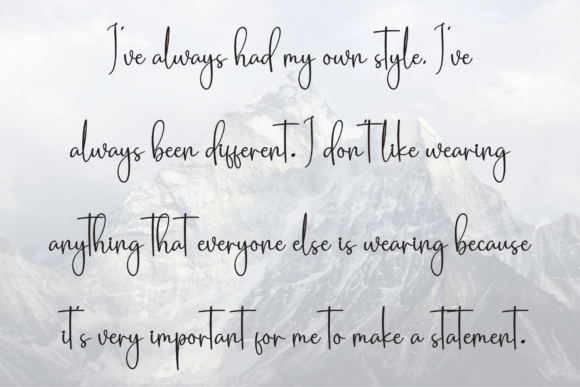 I've always had my own style. I've
always been different. I don't like wearing
anything that everyone else is wearing because
it's very important for me to make a statement.